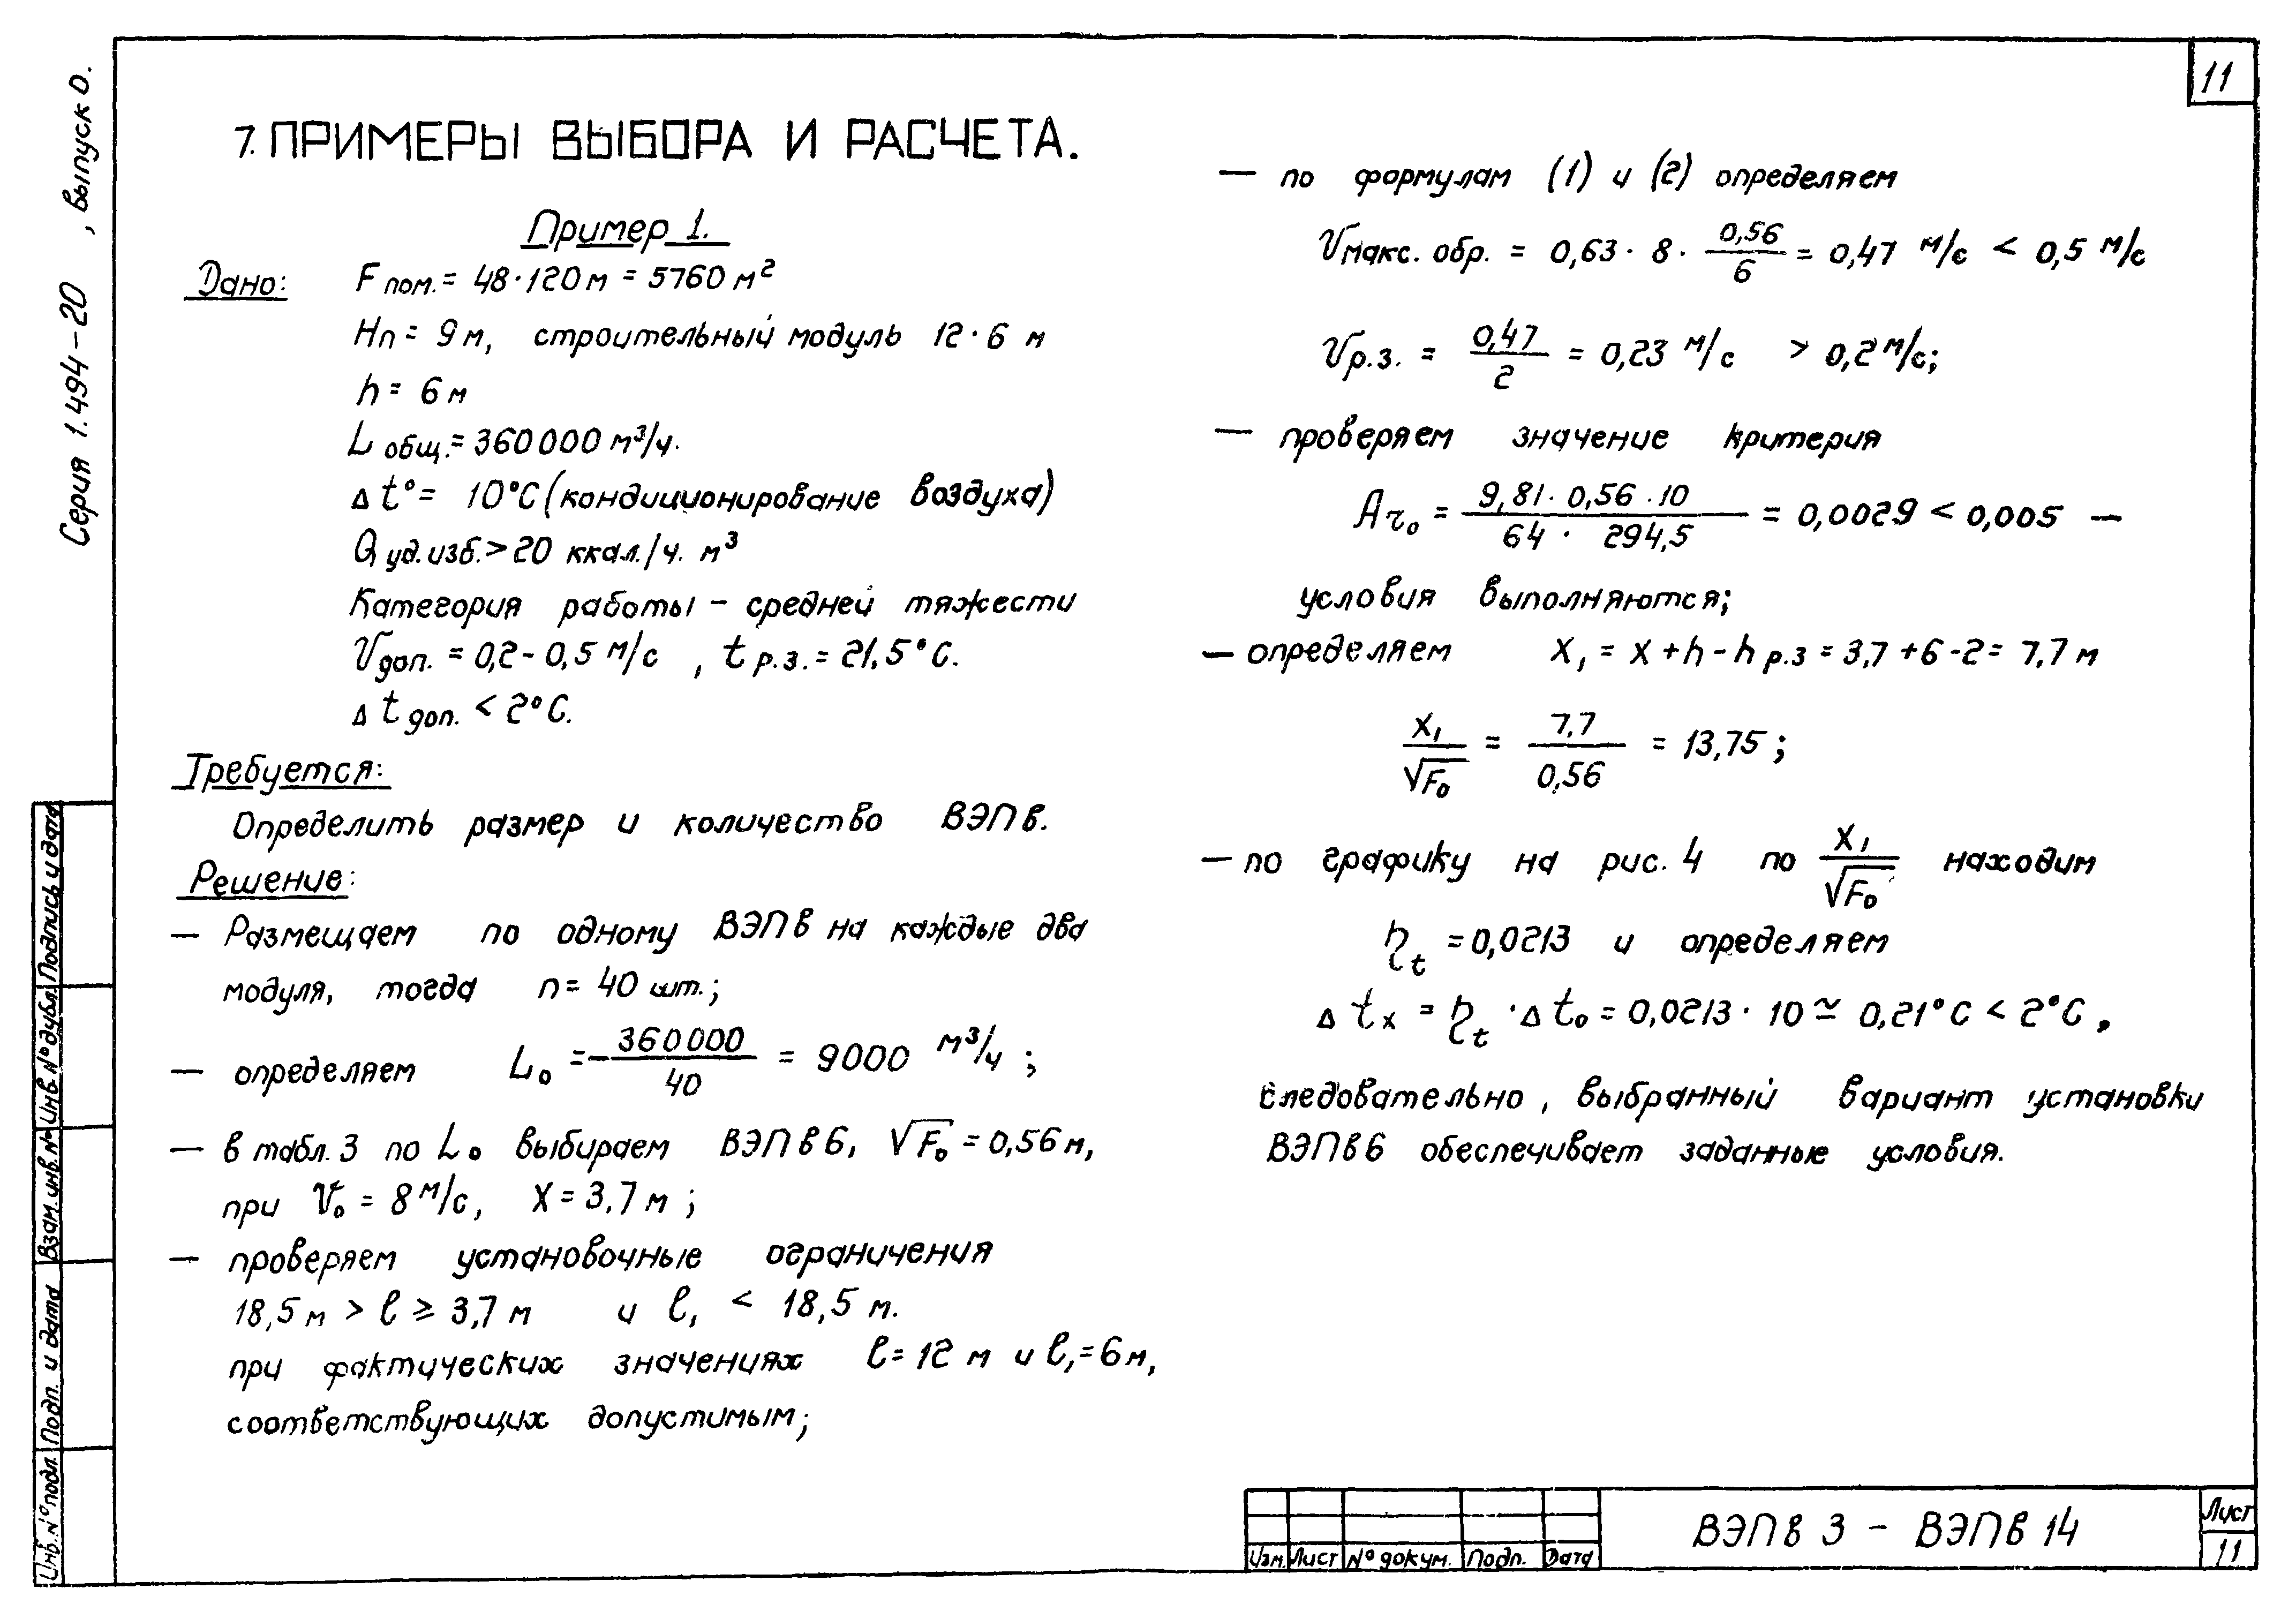 11
Серия 1.494-20 , выпуск 0.
7. ПРИМЕРЫ ВЫБОРА И РАСЧЕТА.
Пример 1.
Дано: F пом. = 48·120 м = 5760 м²
Hп = 9 м, строительный модуль 12·6 м
h = 6 м
L общ. = 360000 м³/ч.
Δ t° = 10°С (кондиционирование воздуха)
Q уд.изб. > 20 ккал./ч. м³
Категория работы – средней тяжести
V доп. = 0,2 - 0,5 м/с , t р.з. = 21,5°С.
Δ t доп. < 2°С.
Требуется:
Определить размер и количество ВЭПв.
Решение:
— Размещаем по одному ВЭПв на каждые два
модуля, тогда n = 40 шт.;
— определяем L₀ = 360000 / 40 = 9000 м³/ч ;
— в табл. 3 по L₀ выбираем ВЭПв6, √F₀ = 0,56 м,
при V₀ = 8 м/с, X = 3,7 м ;
— проверяем установочные ограничения
18,5 м > ℓ ≥ 3,7 м и ℓ₁ < 18,5 м.
при фактических значениях ℓ = 12 м и ℓ₁ = 6 м,
соответствующих допустимым;
— по формулам (1) и (2) определяем
V макс. обр. = 0,63 · 8 · 0,56 / 6 = 0,47 м/с < 0,5 м/с
V р.з. = 0,47 / 2 = 0,23 м/с > 0,2 м/с;
— проверяем значение критерия
Ar₀ = 9,81 · 0,56 · 10 / 64 · 294,5 = 0,0029 < 0,005 —
условия выполняются;
— определяем X₁ = X + h - h р.з = 3,7 + 6 - 2 = 7,7 м
X₁ / √F₀ = 7,7 / 0,56 = 13,75 ;
— по графику на рис. 4 по X₁ / √F₀ находим
η t = 0,0213 и определяем
Δ t x = η t · Δ t₀ = 0,0213 · 10 ≃ 0,21°С < 2°С ,
следовательно, выбранный вариант установки
ВЭПв6 обеспечивает заданные условия.
Инв. № подл. Подп. и дата Взам. инв. № Инв. № дубл. Подпись и дата
Изм. Лист № докум. Подп. Дата
ВЭПв 3 - ВЭПв 14
Лист
11